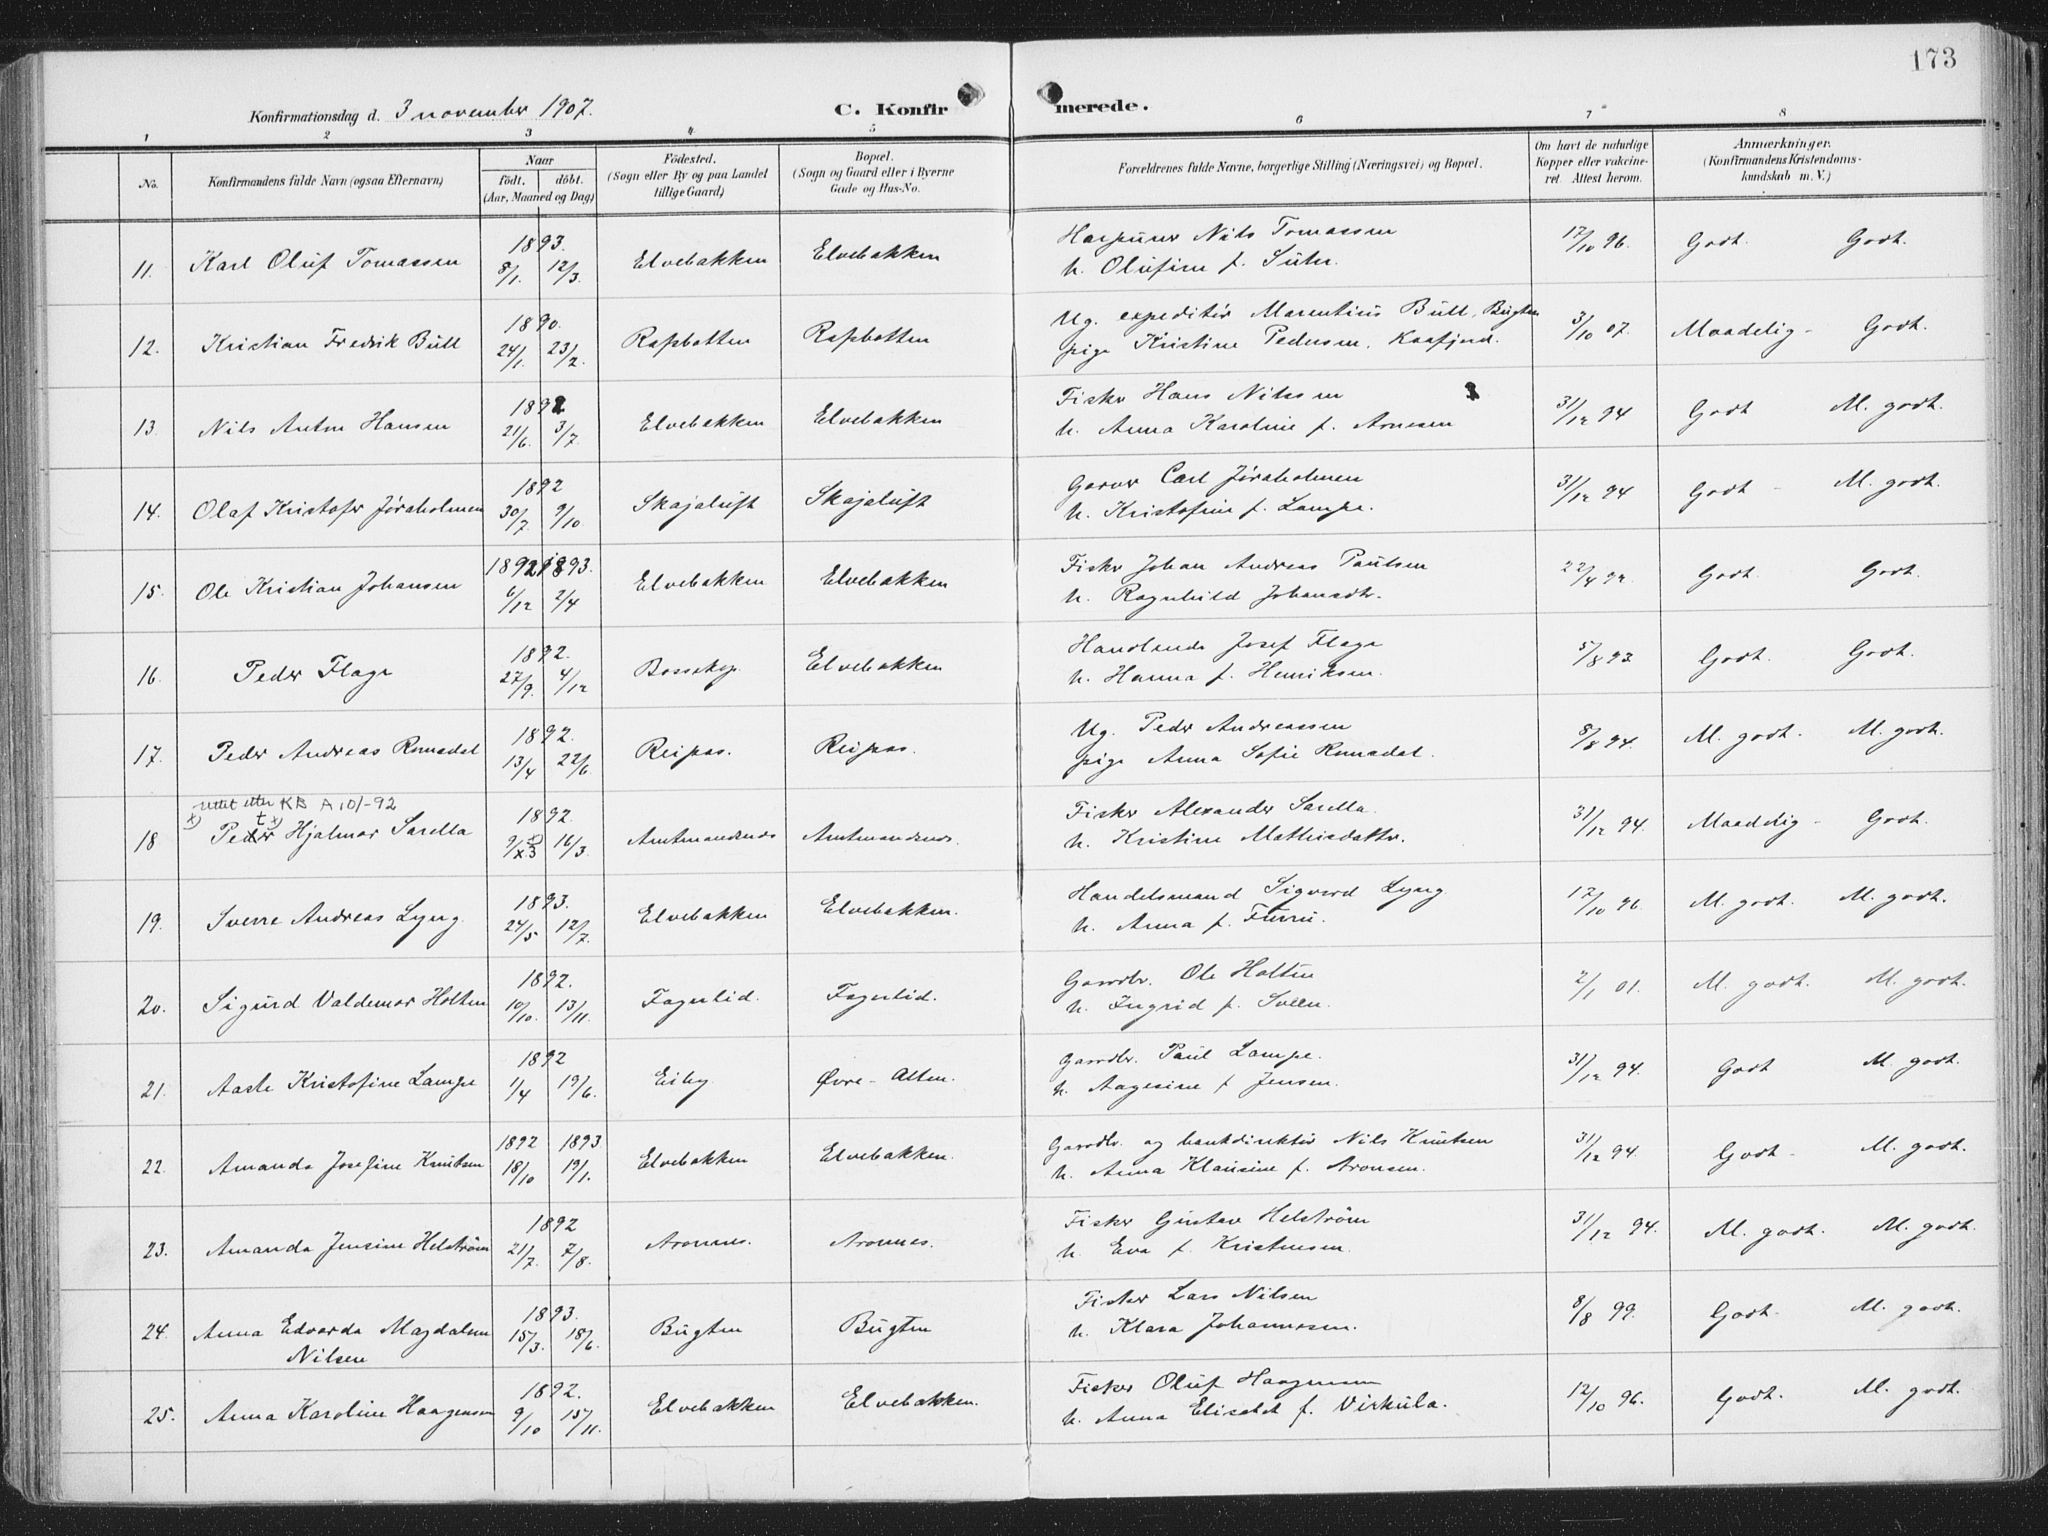 173
Konfirmationsdag d. 3 november 1907.
C. Konfirmerede.
1 2 3 4 5 6 7 8
No.
Konfirmandens fulde Navn (ogsaa Efternavn)
Naar
födt. döbt.
(Aar, Maaned og Dag)
Födested.
(Sogn eller By og paa Landet
tillige Gaard)
Bopæl.
(Sogn og Gaard eller i Byerne
Gade og Hus-No.
Forældrenes fulde Navne, borgerlige Stilling (Næringsvei) og Bopæl.
Om havt de naturlige
Kopper eller vakcine-
ret. Attest herom.
Anmærkninger.
(Konfirmandens Kristendoms-
kundskab m. V.)
1893. Harpuner Nils Tomassen
11. Karl Oluf Tomassen 8/1. 12/3. Elvebakken Elvebakken h. Olufine f. 17/10 96. Godt. Godt.
1890. Ug. expeditör Marentius Bull, Bugten
12. Kristian Fredrik Bull 24/1. 23/2. Rafsbotten Rafsbotten pige Kristine Pedersen. Kaafjord. 3/10 07. Maadelig - Godt.
1892 Fisker Hans Nilssen
13. Nils Anton Hansen 21/6. 3/7. Elvebakken Elvebakken h. Anna Karoline f. Arnesen 31/12 94 Godt M. godt.
1892 Garver Carl Jöraholmen
14. Olaf Kristofer Jöraholmen 30/7. 9/10 Skajaluft Skajaluft h. Kristofine f. Lampe. 31/12 94 Godt - M. godt.
1892 1893. Fisker Johan Andreas Paulsen
15. Ole Kristian Johansen 6/12 2/4 Elvebakken Elvebakken h. Ragnhild Johansdtr. 22/4 Godt. Godt.
1892. Handlende Josef Flage
16. Peder Flage 27/9. 4/12 Bossekop. Elvebakken h. Hanna f. Henriksen. 5/8 93. Godt. Godt.
1892. Ug. Peder Andreassen
17. Peder Andreas Romsdal 13/4 22/6 Reipas. Reipas. pige Anna Sofie Romsdal. 8/8 94. M. godt. M. godt.
rettet etter KB A 101-92
x) t x) 1892. Fisker Alexander Sarilla.
18 Peder Hjalmar Sarilla 9/x3 16/3. Amtmandsnes Amtmandsnes. h. Kristine Mathisdatter. 31/12 94. Maadelig - Godt.
1893. Handelsmand Sigvard Lyng
19. Sverre Andreas Lyng. 24/5 12/7. Elvebakken Elvebakken. h. Anna f. Furru. 17/10 96. M. godt. M. godt.
1892. Gaardbr. Ole Holten
20. Sigurd Valdemar Holten 10/10. 13/11. Fagerlid. Fagerlid. h. Ingrid f. Sveen. 2/1 01. M. godt. M. godt.
1892 Gaardbr. Paul Lampe.
21. Aasle Kristofine Lampe 1/4 19/6. Eiby. Øvre-Alten. h. Aagesine f. Jensen. 31/12 94. Godt M. godt.
1892 1893 Gaardbr. og bankdirektör Nils Knutsen
22. Amanda Josefine Knutsen 18/10 19/1. Elvebakken Elvebakken. h. Anna Klausine f. Aronsen. 31/12 94. Godt - M. godt.
1892 Fisker Gustav Helström
23. Amanda Jensine Helström 21/7. 7/8. Aronnes. Aronnes. h. Eva f. Kristensen. 31/12 94. M. godt. M. godt.
1893. Fisker Lars Nilsen
24. Anna Edvarda Magdalene 15/3. 18/6. Bugten Bugten h. Klara Johannesen. 8/8 99. Godt. M. godt.
Nilsen
1892. Fisker Oluf Haagensen
25. Anna Karoline Haagensen 9/10 15/11. Elvebakken Elvebakken. h. Anna Elisabet f. Virkula. 12/10 96. Godt. M. godt.